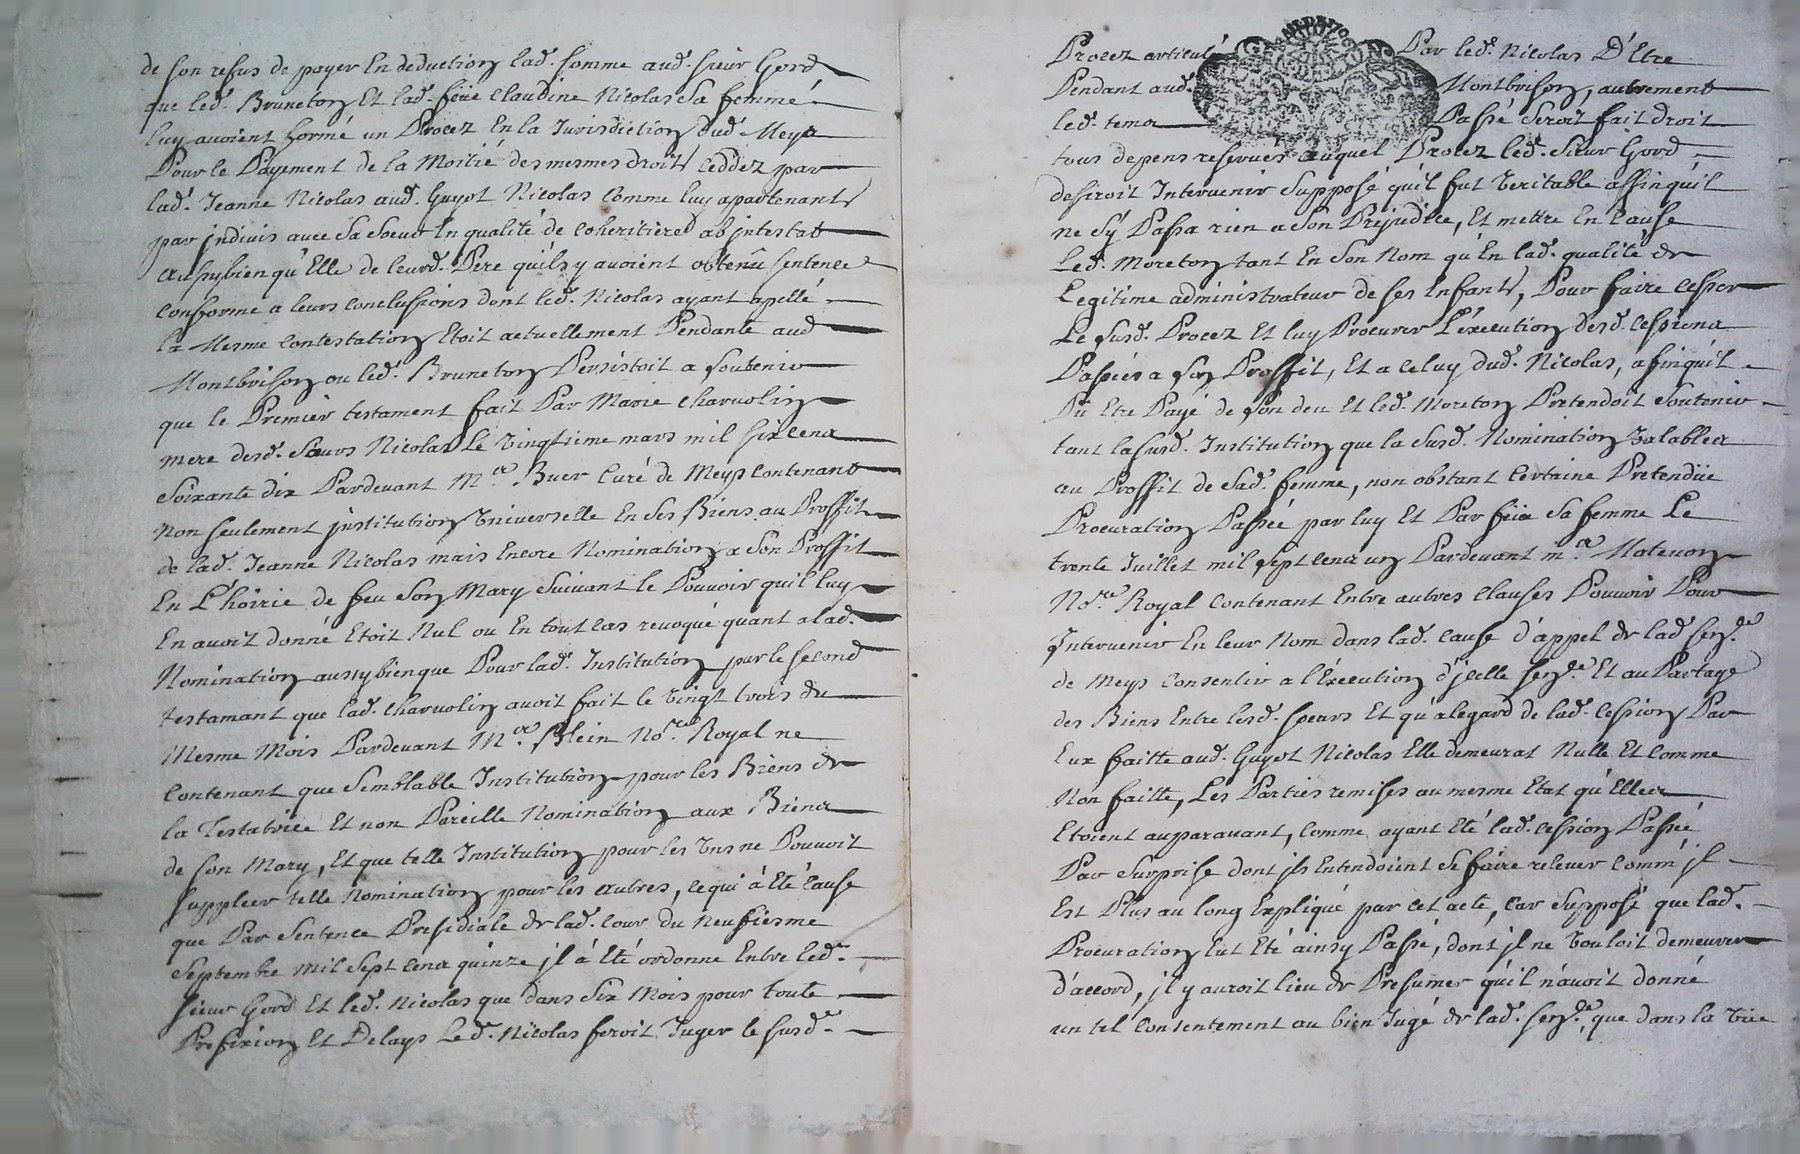 de son refus de payer En deduction lad. somme aud. sieur Gord
que led. Bruneton Et lad. feüe Claudine Nicolas Sa femme
luy avoient formé un Procez En la Jurisdiction dud. Meys
Pour le Payement de la Moitié des mesmes droits ceddez par
lad. Jeanne Nicolas aud. Guyot Nicolas Comme luy apartenants
par jndivis avec Sa Soeur En qualité de Coheritiere ab jntestat
aussybien qu'Elle de leurd. Pere qu'ils y avoient obtenu sentence
conforme a leurs conclussions dont led. Nicolas ayant apellé
la Mesme contestation Etoit actuellement Pendante aud.
Montbrison ou led. Bruneton Persistoit a soutenir
que le Premier testament fait Par Marie Charvolin
mere desd. Sœurs Nicolas Le Vingtieme mars mil sixcens
Soixante dix Pardevant M.re Buer Curé de Meys contenant
non seulement jnstitution Universelle En Ses Biens au Proffit
de lad. Jeanne Nicolas mais Encore Nomination a Son Proffit
En L'hoirie de feu Son Mary Suivant le Pouvoir qu'il luy
En avoit donné Etoit Nul ou En tout cas revoqué quant a lad.
Nomination aussybienque Pour lad. Institution par le second
testamant que lad. Charvolin avoit fait le Vingt trois du
Mesme Mois Pardevant M.re Blein No.re Royal ne
Contenant que Semblable Institution pour les Biens de
la Testatrice Et non Pareille Nomination aux Biens
de son Mary, Et que telle Institution pour les Uns ne Pouvoit
suppleer telle nomination pour les autres, ce qui à Eté cause
que Par Sentence Presidiale de lad. cour du neufiesme
Septembre mil Sept cens quinze jl à Eté ordonne Entre led.
sieur Gord Et led. Nicolas que dans Six Mois pour toute
Prefixion Et Delays Led. Nicolas feroit Juger le susd.
Procez articulé Par led. Nicolas D'Etre
Pendant aud. Montbrison, autrement
led. tems Passé Seroit fait droit
tous depens reservez auquel Procez led. Sieur Gord
desiroit Intervenir Supposé qu'il fut Veritable affinqu'il
ne s'y Passa rien a Son Prejudice, Et mettre En Cause
Led. Moreton tant En Son Nom qu'En lad. qualité de
Legitime administrateur de ses Enfants, Pour faire cesser
Le susd. Procez Et luy Procurer L'éxecution desd. cessions
Passées a son Proffit, Et a celuy dud. Nicolas, afinqu'il
Pû Etre Payé de son deu Et led. Moreton Pretendoit Soutenir
tant lasusd. Institution que la Susd. Nomination Valables
au Proffit de Sad. femme, non obstant Certaine Pretendüe
Procuration Passée par luy Et Par feüe Sa femme Le
trente Juillet mil sept cens un Pardevant m.re Matevon
No.re Royal Contenant Entre autres Clauses Pouvoir Pour
Intervenir En leur Nom dans lad. Cause d'appel de lad. sen.ce
de Meys Consentir a l'Execution d'jcelle sen.ce Et au Partage
des Biens Entre lesd. Soeurs Et qu'alegard de lad. Cession Par
Eux faitte aud. Guyot Nicolas Elle demeurat Nulle Et Comme
Non faitte, Les Parties remises au mesme Etat qu'Elles
Etoient auparavant, Comme ayant Eté lad. Cession Passée
Par Surprise dont jls Entendoient Se faire relever Comm'jl
Est Plus au long Expliqué par cet acte, car Supposé que lad.
Procuration Eut Eté ainsy Passé, dont jl ne Vouloit demeurer
d'accord, jl y auroit lieu de Presumer qu'il n'avoit donné
un tel Consentement au bien Jugé de lad. sen.ce que dans la Vüe